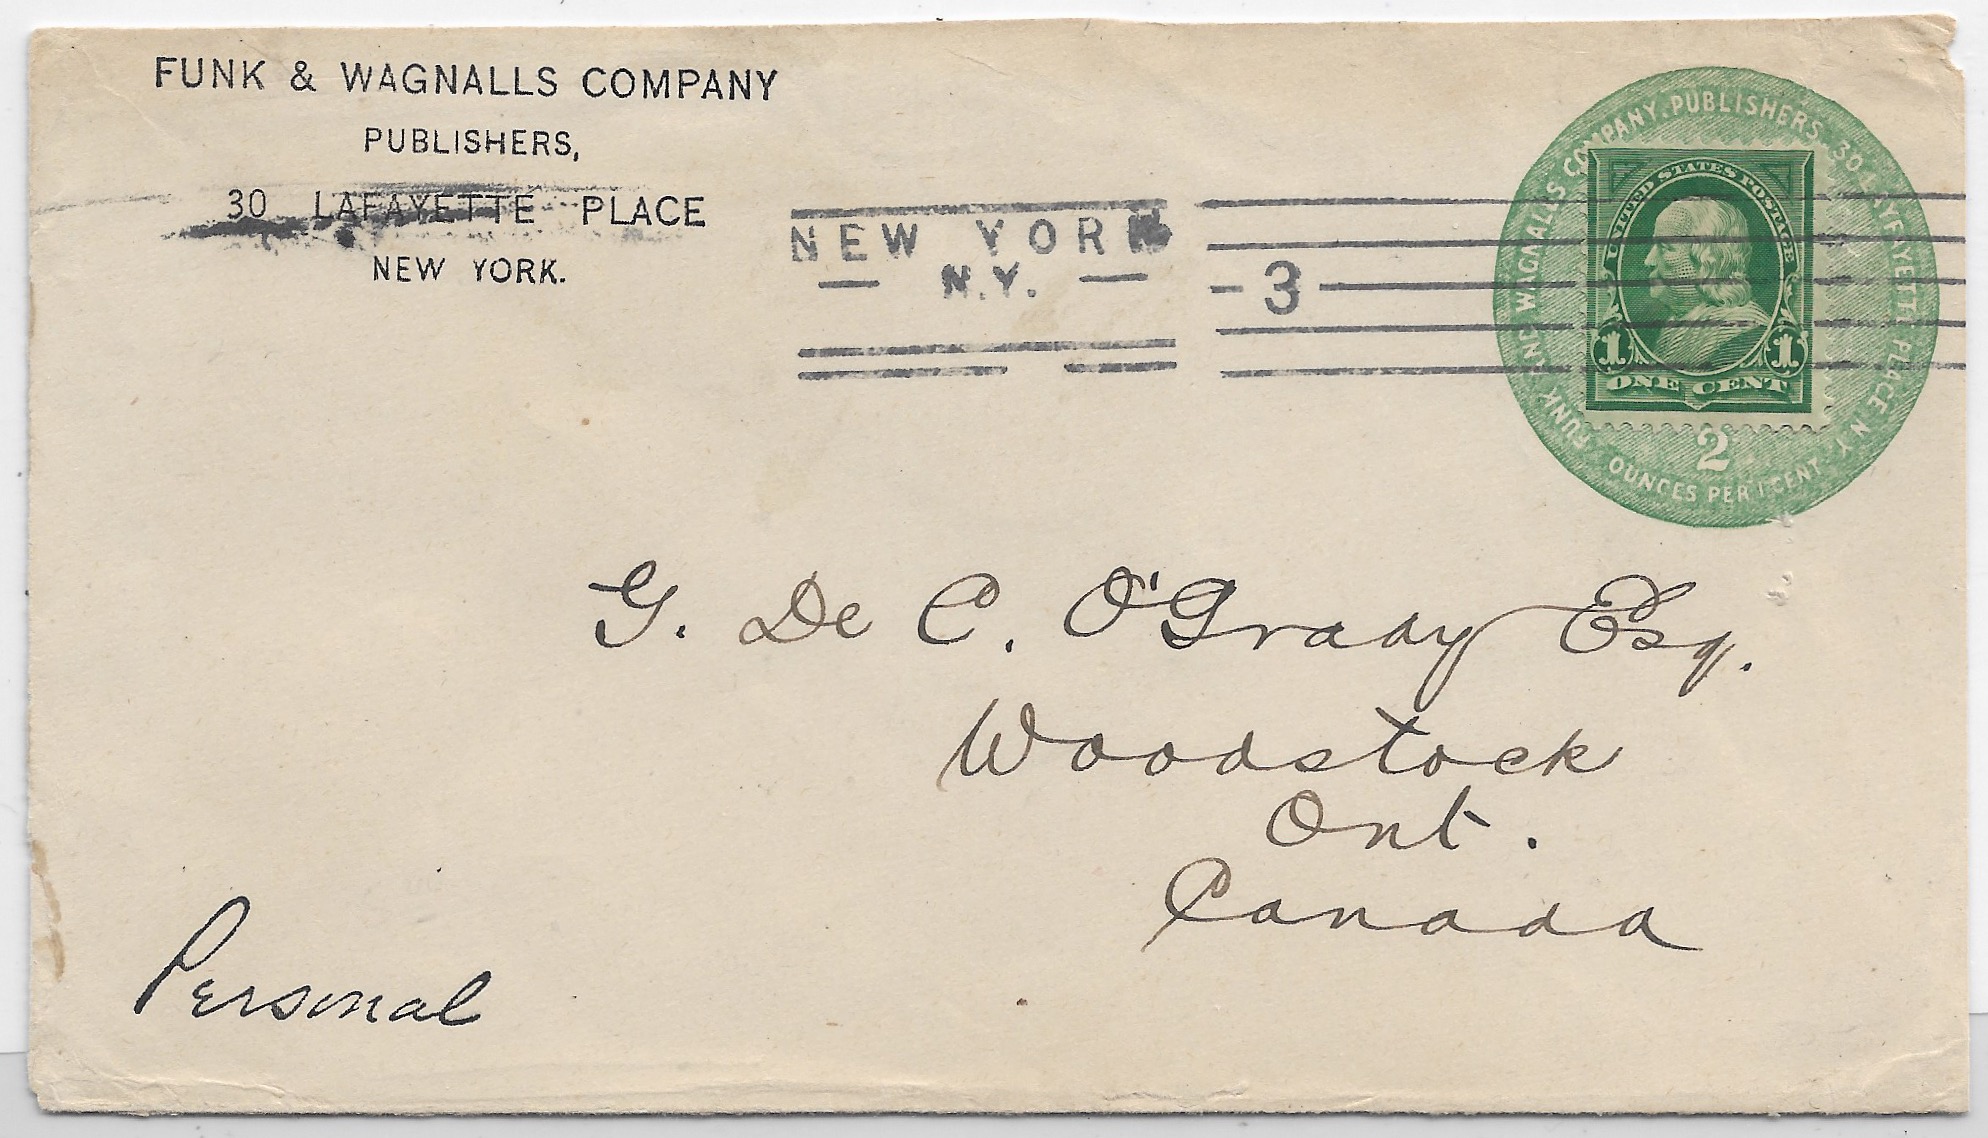 FUNK & WAGNALLS COMPANY
PUBLISHERS,
30 LAFAYETTE PLACE
NEW YORK.
NEW YORK
N.Y.
3
FUNK AND WAGNALLS COMPANY. PUBLISHERS. 30 LAFAYETTE PLACE N.Y.
UNITED STATES POSTAGE
1 1
ONE CENT
2
OUNCES PER 1 CENT
G. De C. O'Grady Esq.
Woodstock
Ont.
Canada
Personal